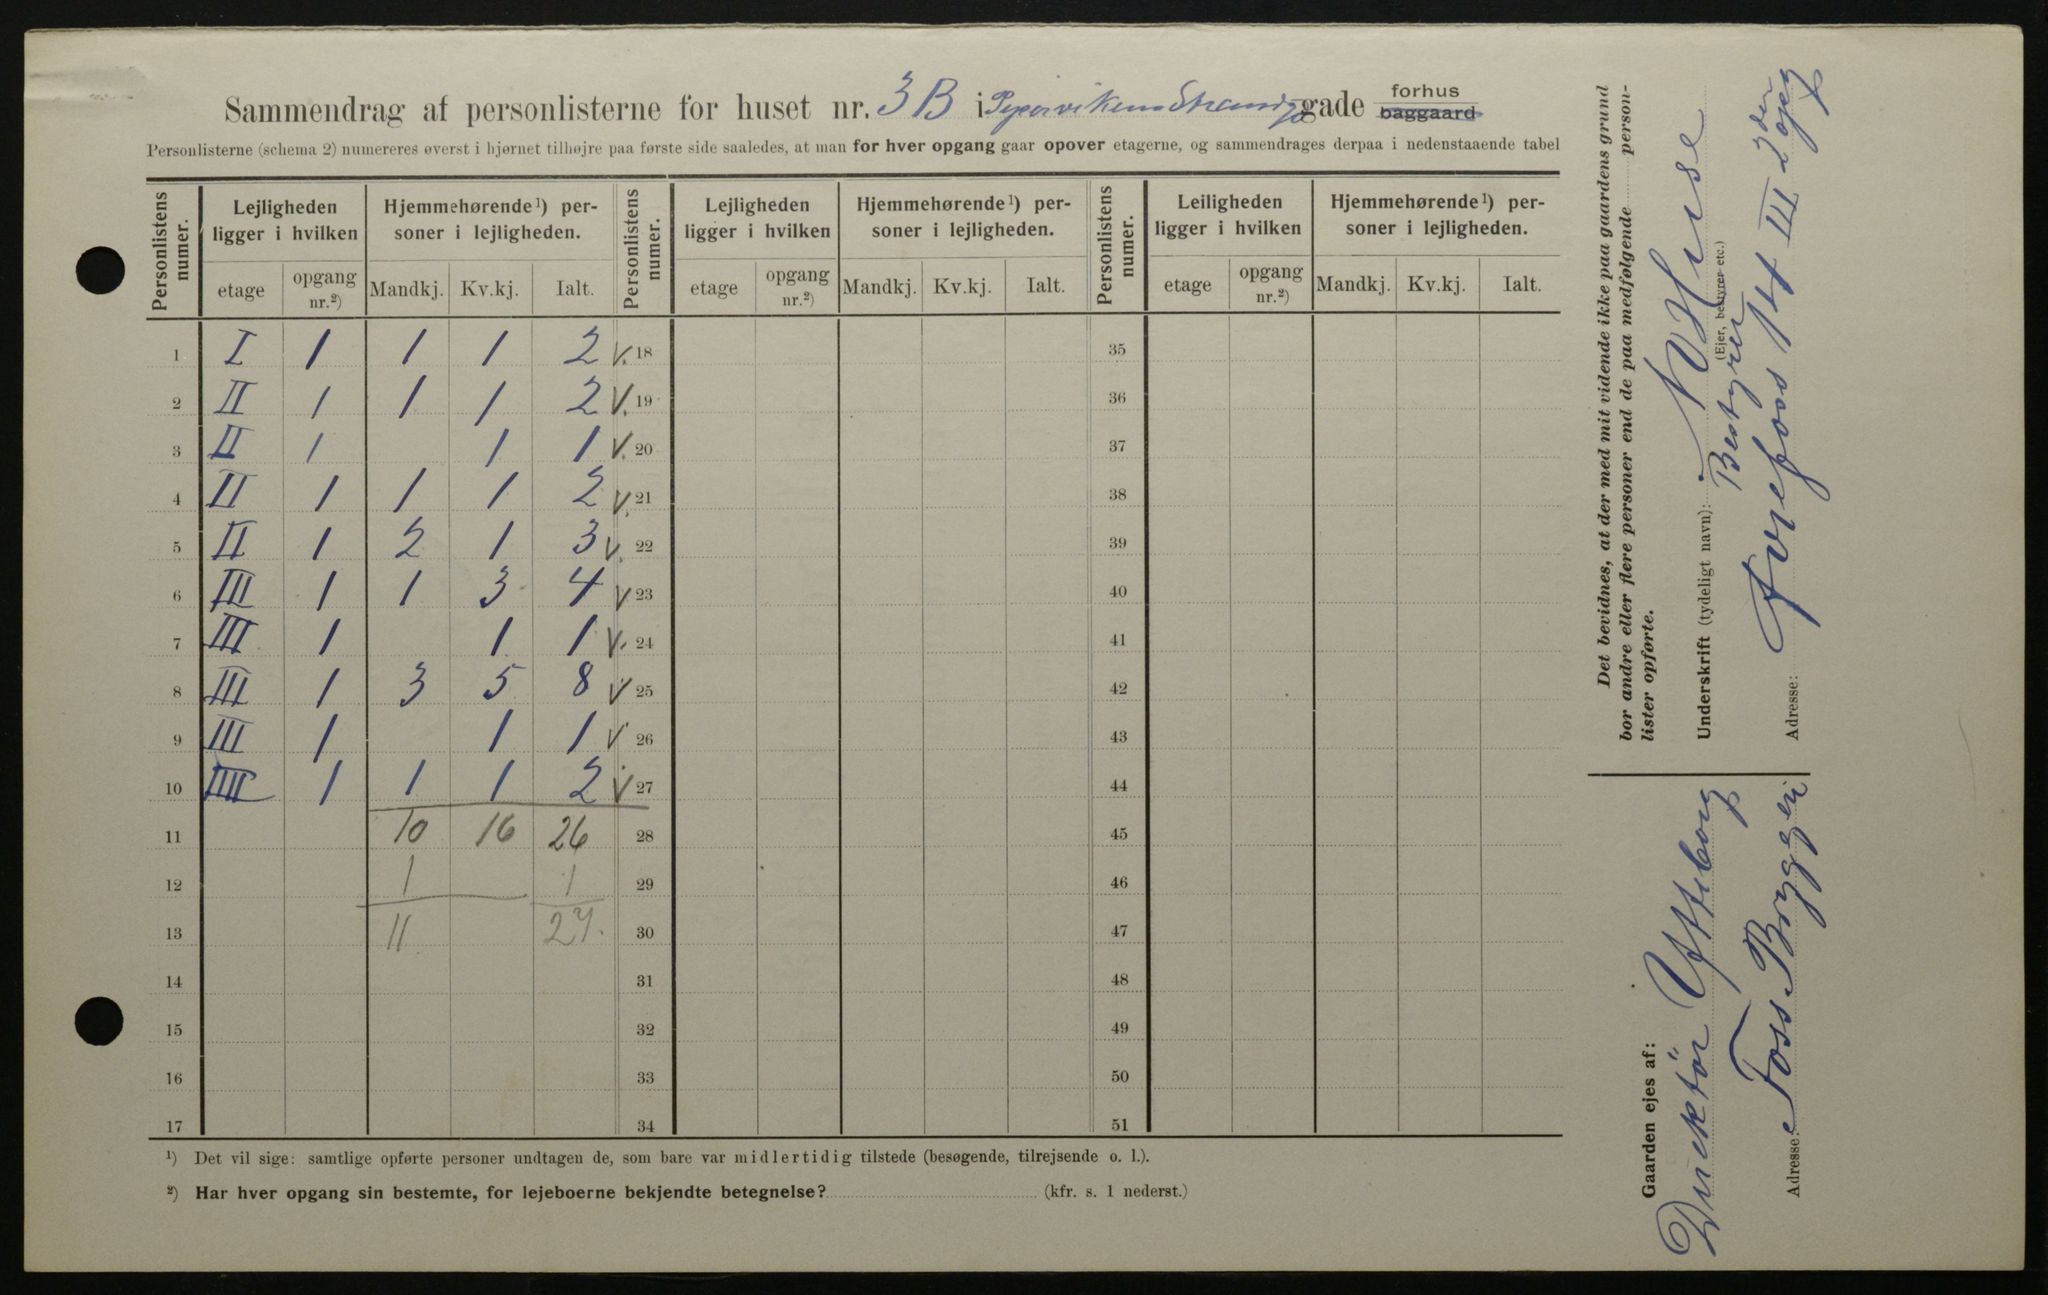 Sammendrag af personlisterne for huset nr. 3B i Pipervikens Strandgade forhus
~~baggaard~~
Personlisterne (schema 2) numereres øverst i hjørnet tilhøjre paa første side saaledes, at man for hver opgang gaar opover etagerne, og sammendrages derpaa i nedenstaaende tabel
Personlistens numer. | Lejligheden ligger i hvilken | Hjemmehørende¹) personer i lejligheden. | Personlistens numer. | Lejligheden ligger i hvilken | Hjemmehørende¹) personer i lejligheden. | Personlistens numer. | Leiligheden ligger i hvilken | Hjemmehørende¹) personer i lejligheden.
etage | opgang nr.²) | Mandkj. | Kv.kj. | Ialt. | etage | opgang nr.²) | Mandkj. | Kv.kj. | Ialt. | etage | opgang nr.²) | Mandkj. | Kv.kj. | Ialt.
1 I 1 1 1 2 V. 18 35
2 II 1 1 1 2 V. 19 36
3 II 1 1 1 V. 20 37
4 II 1 1 1 2 V. 21 38
5 II 1 2 1 3 V. 22 39
6 III 1 1 3 4 V 23 40
7 III 1 1 1 V. 24 41
8 III 1 3 5 8 V 25 42
9 III 1 1 1 V 26 43
10 IIII 1 1 1 2 V 27 44
11 10 16 26 28 45
12 1 1 29 46
13 11 27. 30 47
14 31 48
15 32 49
16 33 50
17 34 51
¹) Det vil sige: samtlige opførte personer undtagen de, som bare var midlertidig tilstede (besøgende, tilrejsende o. l.).
²) Har hver opgang sin bestemte, for lejeboerne bekjendte betegnelse? (kfr. s. 1 nederst.)
Det bevidnes, at der med mit vidende ikke paa gaardens grund
bor andre eller flere personer end de paa medfølgende person-
lister opførte.
Underskrift (tydeligt navn): N Huse
(Ejer, bestyrer etc.)
Bestyrer
Adresse: Arefoss 14 III 2den opg
Gaarden ejes af:
Direktör Ytteborg
Adresse: Foss Bryggeri